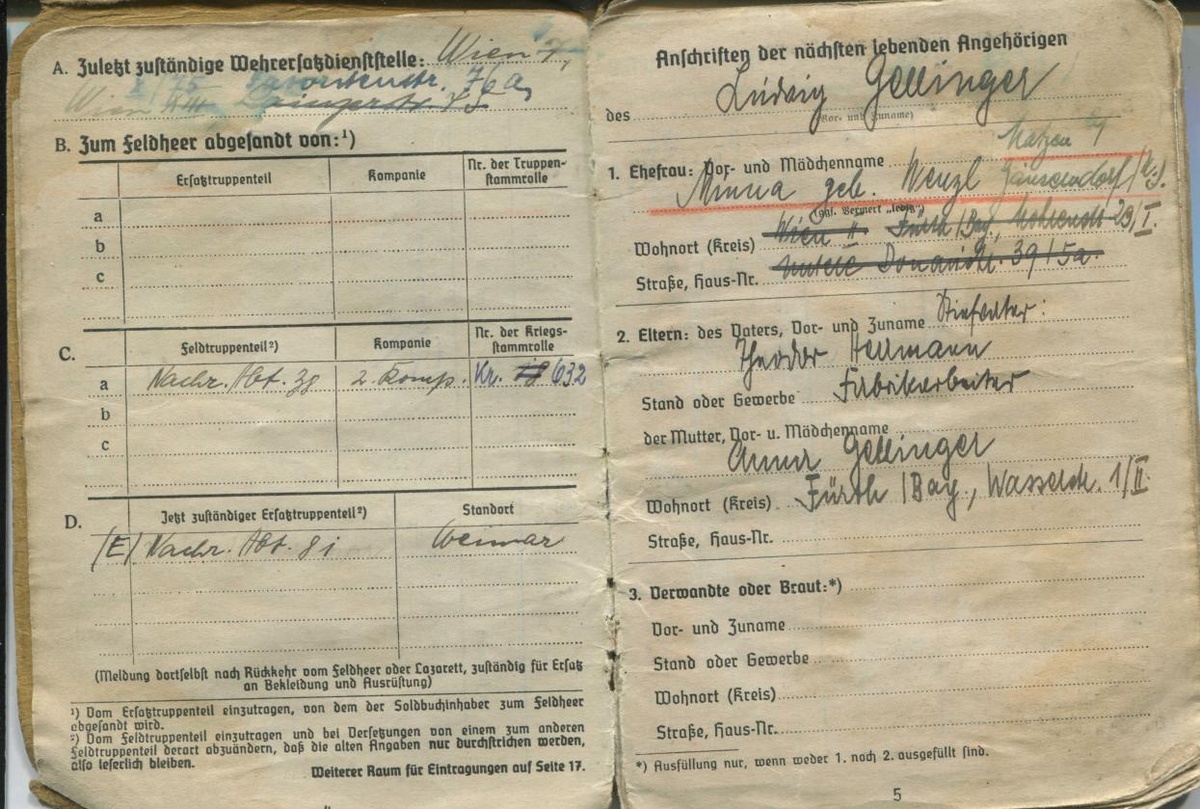 A. Zuletzt zuständige Wehrersatzdienststelle: Wien
Wien 76a
B. Zum Feldheer abgesandt von:¹)
Ersatztruppenteil Kompanie Nr. der Truppen-
stammrolle
a
b
c
C. Feldtruppenteil²) Kompanie Nr. der Kriegs-
stammrolle
a Nachr. Abt. 38 2. Komp. Kr. 18 632
b
c
D. Jetzt zuständiger Ersatztruppenteil²) Standort
(E) Nachr. Abt. 81 Weimar
(Meldung dortselbst nach Rückkehr vom Feldheer oder Lazarett, zuständig für Ersatz
an Bekleidung und Ausrüstung)
¹) Vom Ersatztruppenteil einzutragen, von dem der Soldbuchinhaber zum Feldheer
abgesandt wird.
²) Vom Feldtruppenteil einzutragen und bei Versetzungen von einem zum anderen
Feldtruppenteil derart abzuändern, daß die alten Angaben nur durchstrichen werden,
also leserlich bleiben.
Weiterer Raum für Eintragungen auf Seite 17.
Anschriften der nächsten lebenden Angehörigen
des Ludwig Gellinger
(Vor- und Zuname)
Matzen
1. Ehefrau: Vor- und Mädchenname
Minna geb. Wenzl Gänserndorf
(ggf. Vermerk „ledig“)
Wohnort (Kreis) Wien II Fürth /Bay., 29/I.
Straße, Haus-Nr. Untere Donaustr. 39/5a.
2. Eltern: des Vaters, Vor- und Zuname Stiefvater:
Theodor Hellmann
Stand oder Gewerbe Fabrikarbeiter
der Mutter, Vor- u. Mädchenname
Anna Gellinger
Wohnort (Kreis) Fürth /Bay., 1/II.
Straße, Haus-Nr.
3. Verwandte oder Braut:*)
Vor- und Zuname
Stand oder Gewerbe
Wohnort (Kreis)
Straße, Haus-Nr.
*) Ausfüllung nur, wenn weder 1. noch 2. ausgefüllt sind.
5